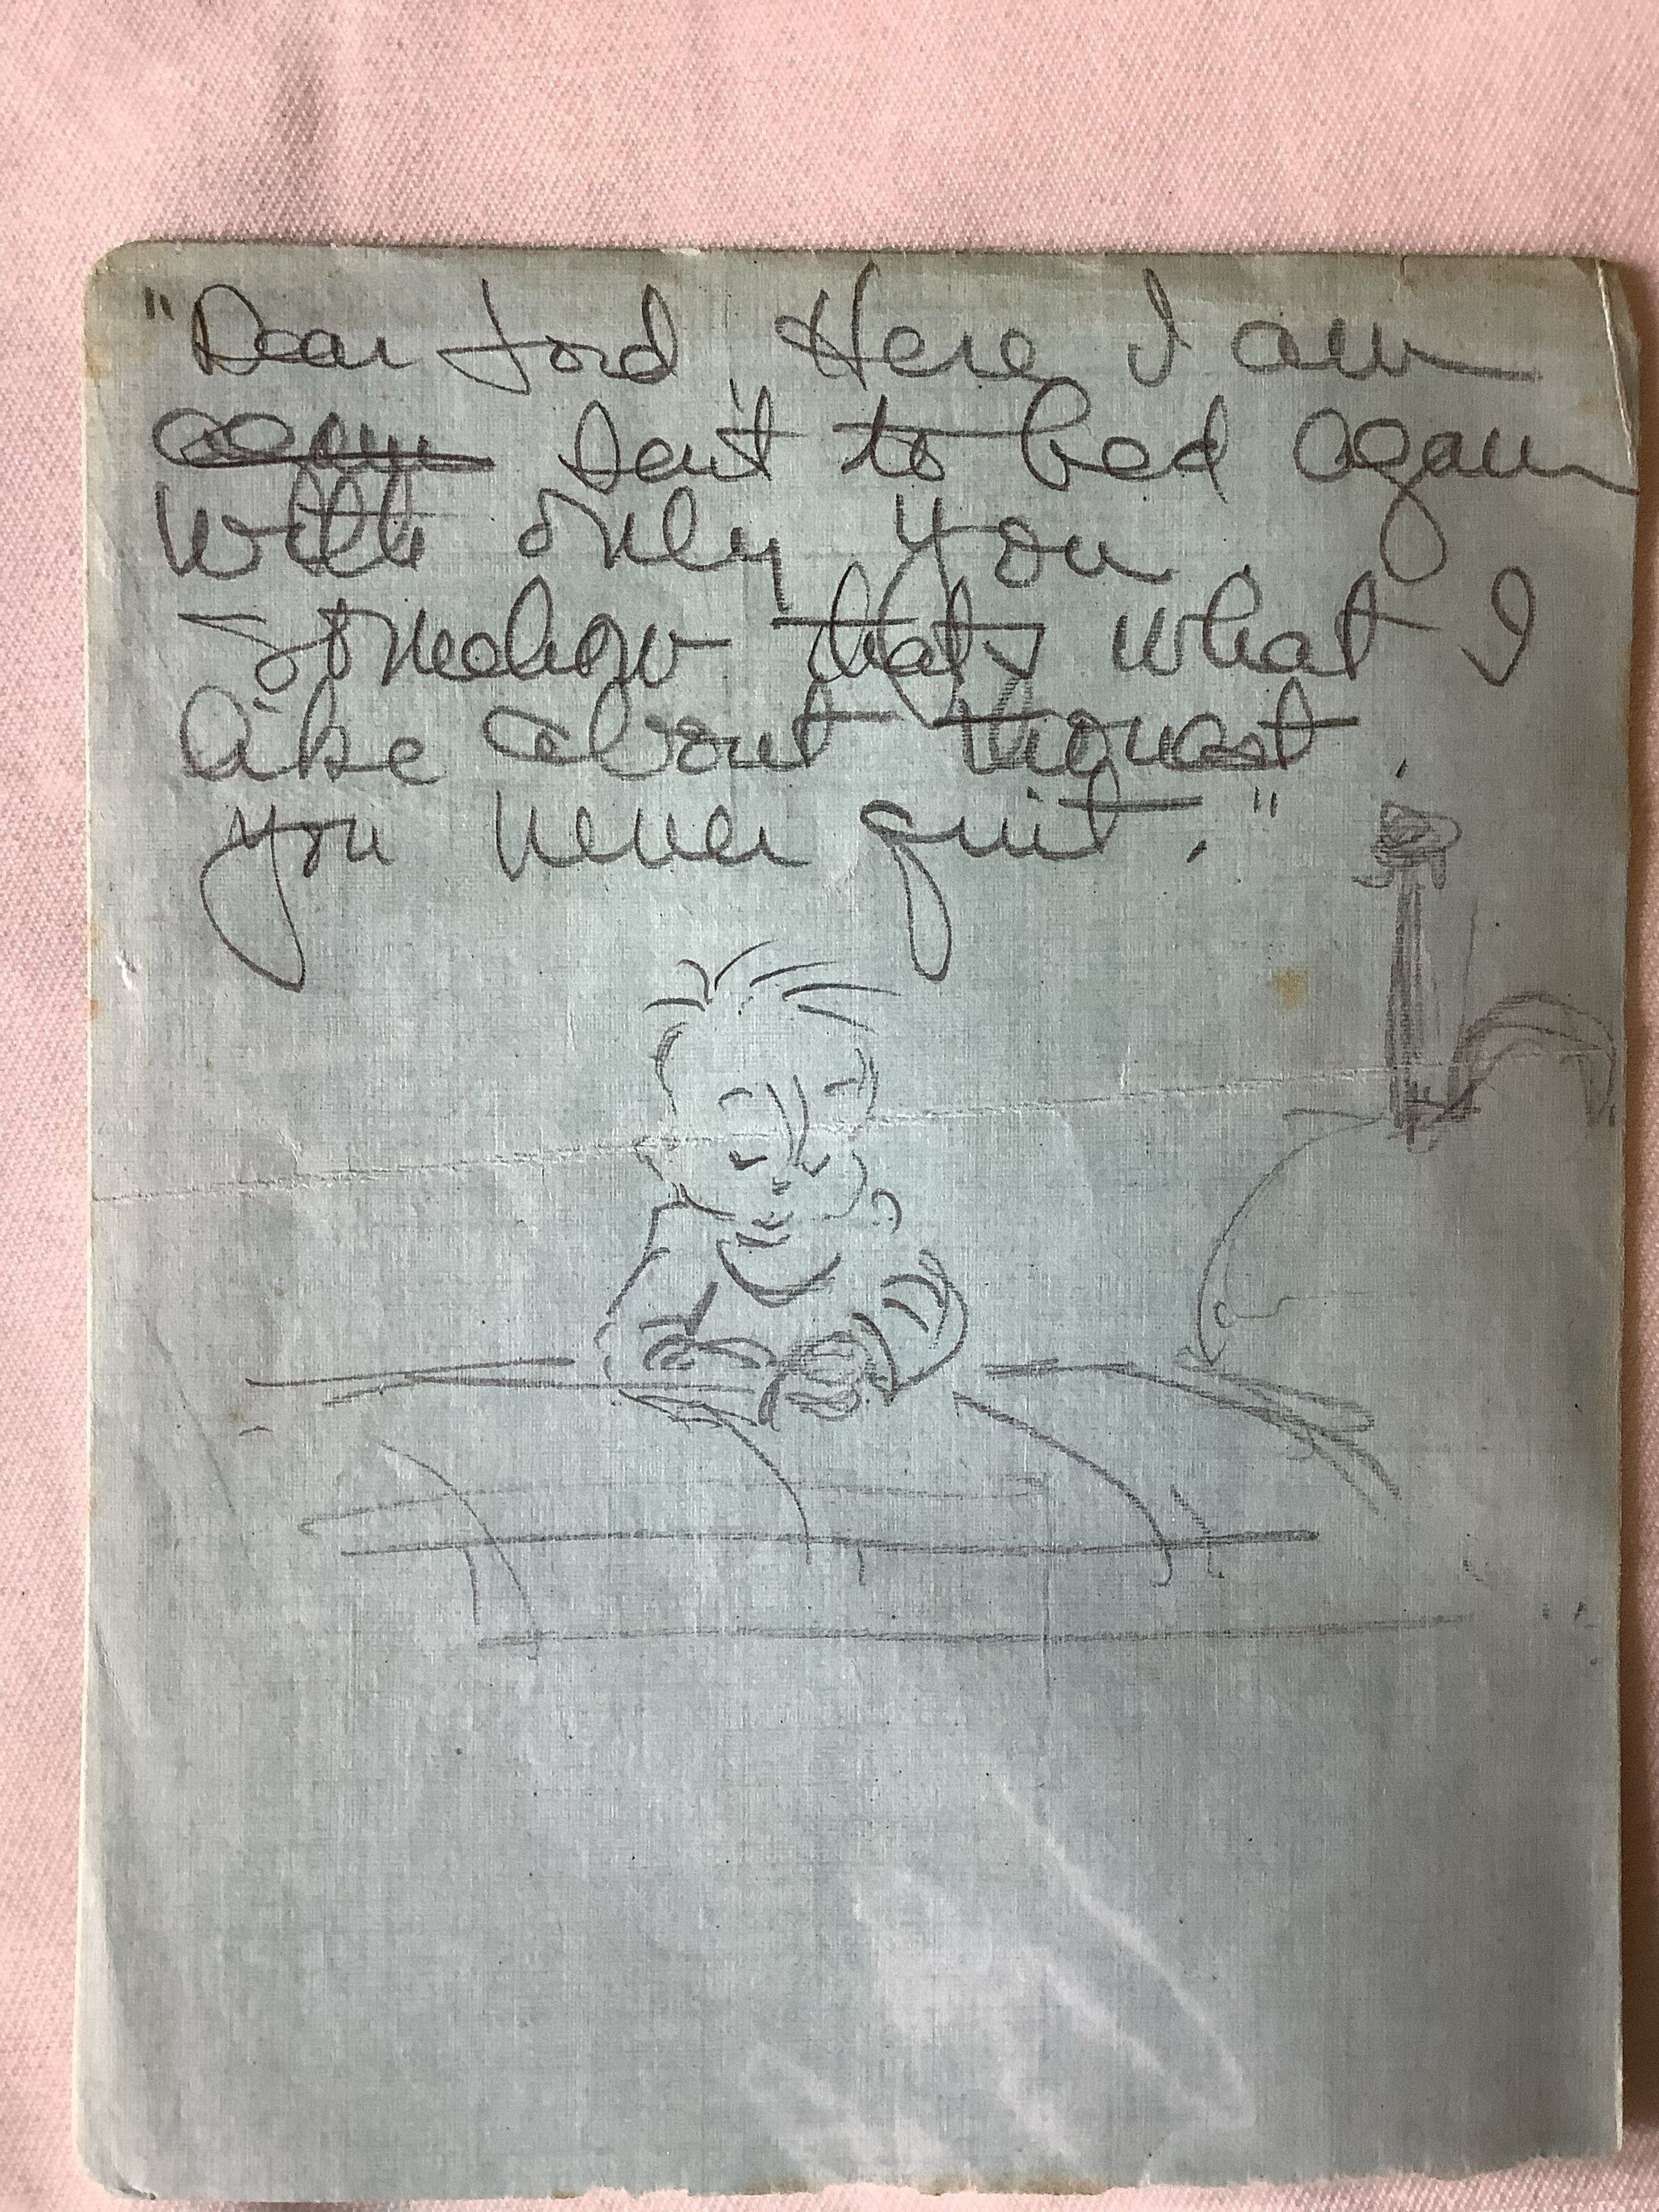 "Dear Lord, Here I am
sent to bed again
with only you.
Somehow that's what I
like about
you never quit."